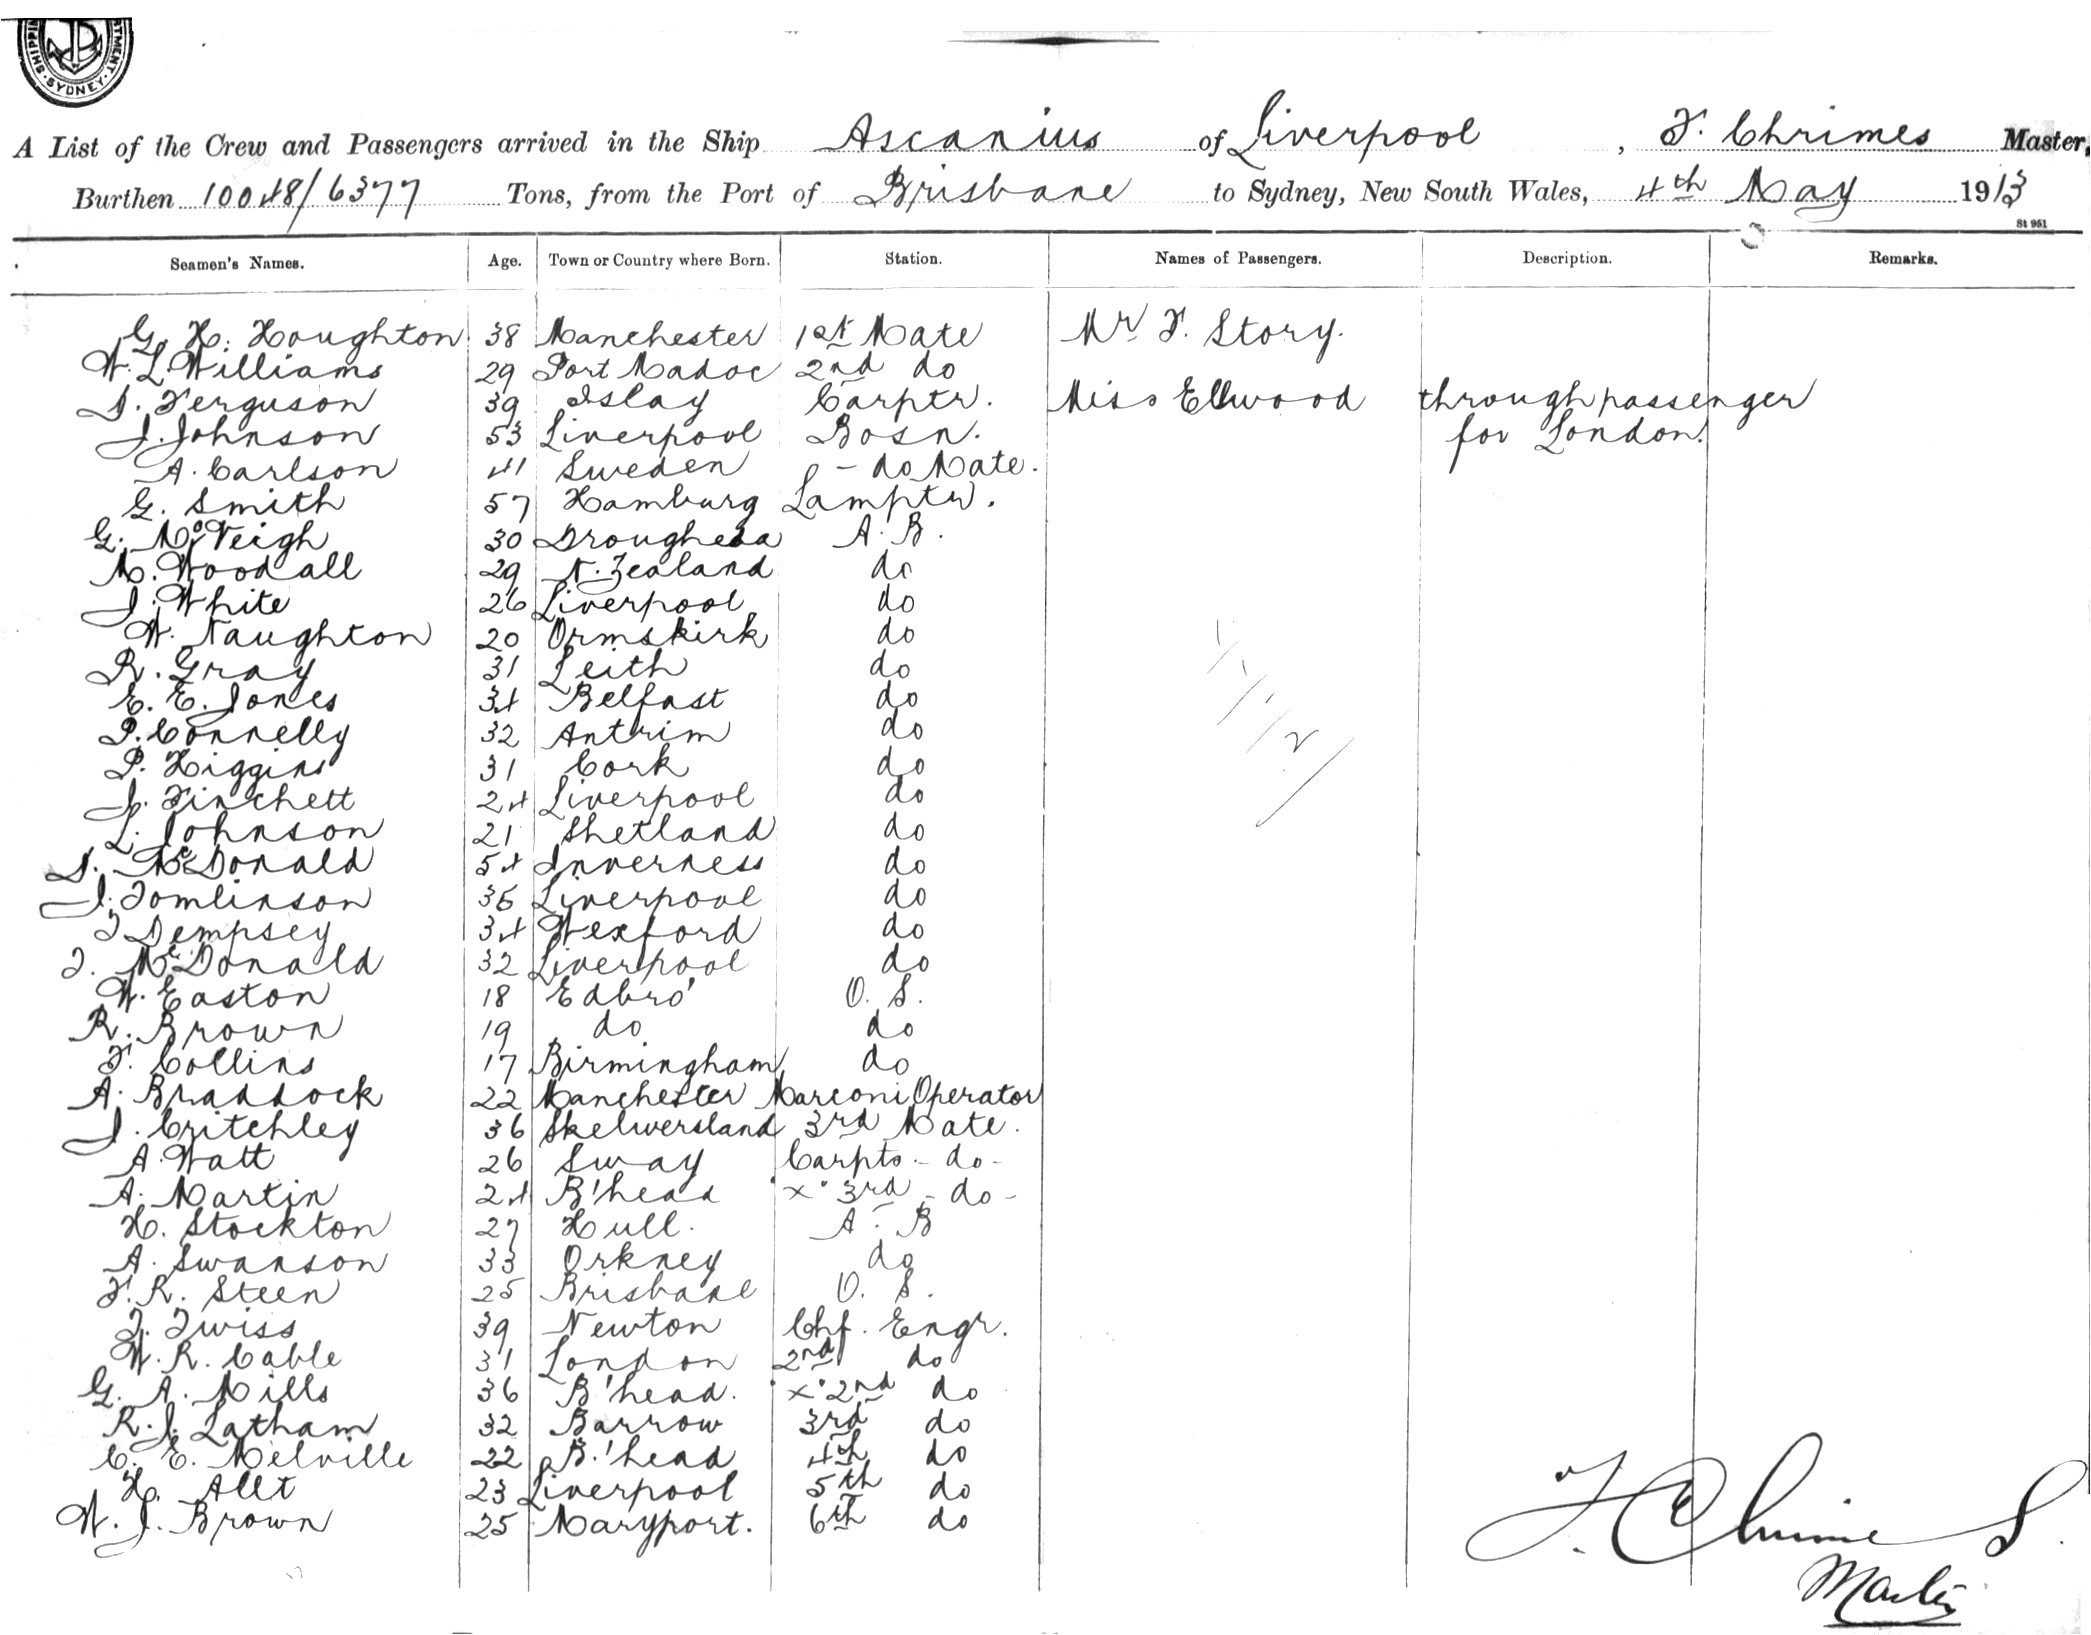 SHIPPING DEPARTMENT SYDNEY
A List of the Crew and Passengers arrived in the Ship Ascanius of Liverpool, F. Chrimes Master,
Burthen 10048/6377 Tons, from the Port of Brisbane to Sydney, New South Wales, 4th May 1913
St 951
Seamen's Names. Age. Town or Country where Born. Station. Names of Passengers. Description. Remarks.
G. H. Houghton 38 Manchester 1st Mate Mr F. Story.
W. L. Williams 29 Port Madoc 2nd do
D. Ferguson 39 Islay Carptr. Miss Ellwood through passenger
J. Johnson 53 Liverpool Bosn. for London.
A. Carlson 41 Sweden - do Mate.
G. Smith 57 Hamburg Lamptr.
G. McVeigh 30 Drougheda A. B.
M. Woodall 29 N. Zealand do
J. White 26 Liverpool do
W. Naughton 20 Ormskirk do
R. Gray 31 Leith do
E. E. Jones 34 Belfast do
P. Connelly 32 Antrim do
P. Higgins 31 Cork do
J. Finchett 24 Liverpool do
L. Johnson 21 Shetland do
D. McDonald 54 Inverness do
J. Tomlinson 36 Liverpool do
T Dempsey 34 Wexford do
T. McDonald 32 Liverpool do
W. Easton 18 Edbro' O. S.
R. Brown 19 do do
F. Collins 17 Birmingham do
A. Braddock 22 Manchester Marconi Operator
J. Critchley 36 Skelwersland 3rd Mate.
A. Watt 26 Sway Carpts - do -
A. Martin 24 B'head "x" 3rd - do -
H. Stockton 27 Hull. A. B
A. Swanson 33 Orkney do
F. R. Steen 25 Brisbane O. S.
T. Twiss 39 Newton Chf. Engr.
W. R. Cable 31 London 2nd do
G. A. Mills 36 B'head. "x" 2nd do
R. J. Latham 32 Barrow 3rd do
C. E. Melville 22 B.'head 4th do
H. Allt 23 Liverpool 5th do
W. J. Brown 25 Maryport. 6th do
F. Chrimes
Master